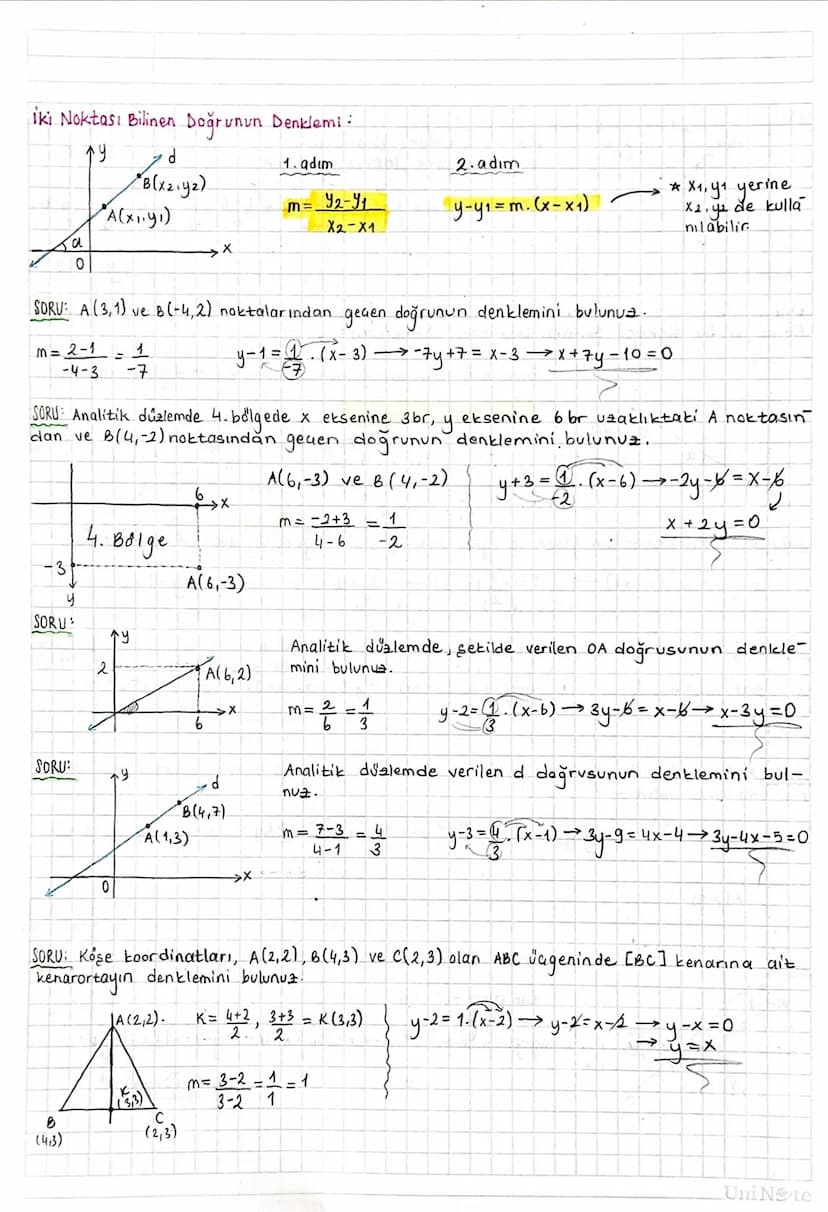 İki Noktası Bilinen Doğrunun Denklemi:
y
d
B(x2,y2)
A(x1,y1)
α
0
x
1. adım
m = y2-y1 / x2-x1
2. adım
y-y1 = m.(x-x1)
* x1,y1 yerine
x2,y2 de kulla-
nılabilir.
SORU: A(3,1) ve B(-4,2) noktalarından geçen doğrunun denklemini bulunuz.
m = 2-1 / -4-3 = 1 / -7
y-1 = 1/-7 . (x-3) → -7y+7 = x-3 → x+7y-10=0
SORU: Analitik düzlemde 4. bölgede x eksenine 3br, y eksenine 6 br uzaklıktaki A noktasın-
dan ve B(4,-2) noktasından geçen doğrunun denklemini bulunuz.
6
x
4. Bölge
-3
y
A(6,-3)
A(6,-3) ve B(4,-2)
m = -2+3 / 4-6 = 1 / -2
y+3 = 1/-2 . (x-6) → -2y-6 = x-6
x+2y=0
SORU:
y
2
A(6,2)
x
6
Analitik düzlemde, şekilde verilen OA doğrusunun denkle-
mini bulunuz.
m = 2/6 = 1/3
y-2 = 1/3 . (x-6) → 3y-6 = x-6 → x-3y=0
SORU:
y
d
B(4,7)
A(1,3)
0
x
Analitik düzlemde verilen d doğrusunun denklemini bul-
nuz.
m = 7-3 / 4-1 = 4/3
y-3 = 4/3 . (x-1) → 3y-9 = 4x-4 → 3y-4x-5=0
SORU: Köşe koordinatları, A(2,2), B(4,3) ve C(2,3) olan ABC üçgeninde [BC] kenarına ait
kenarortayın denklemini bulunuz.
A(2,2).
K
(3,3)
B
(4,3)
C
(2,3)
K = 4+2 / 2 , 3+3 / 2 = K(3,3)
m = 3-2 / 3-2 = 1/1 = 1
y-2 = 1.(x-2) → y-2 = x-2 → y-x=0
→ y=x
UniNote